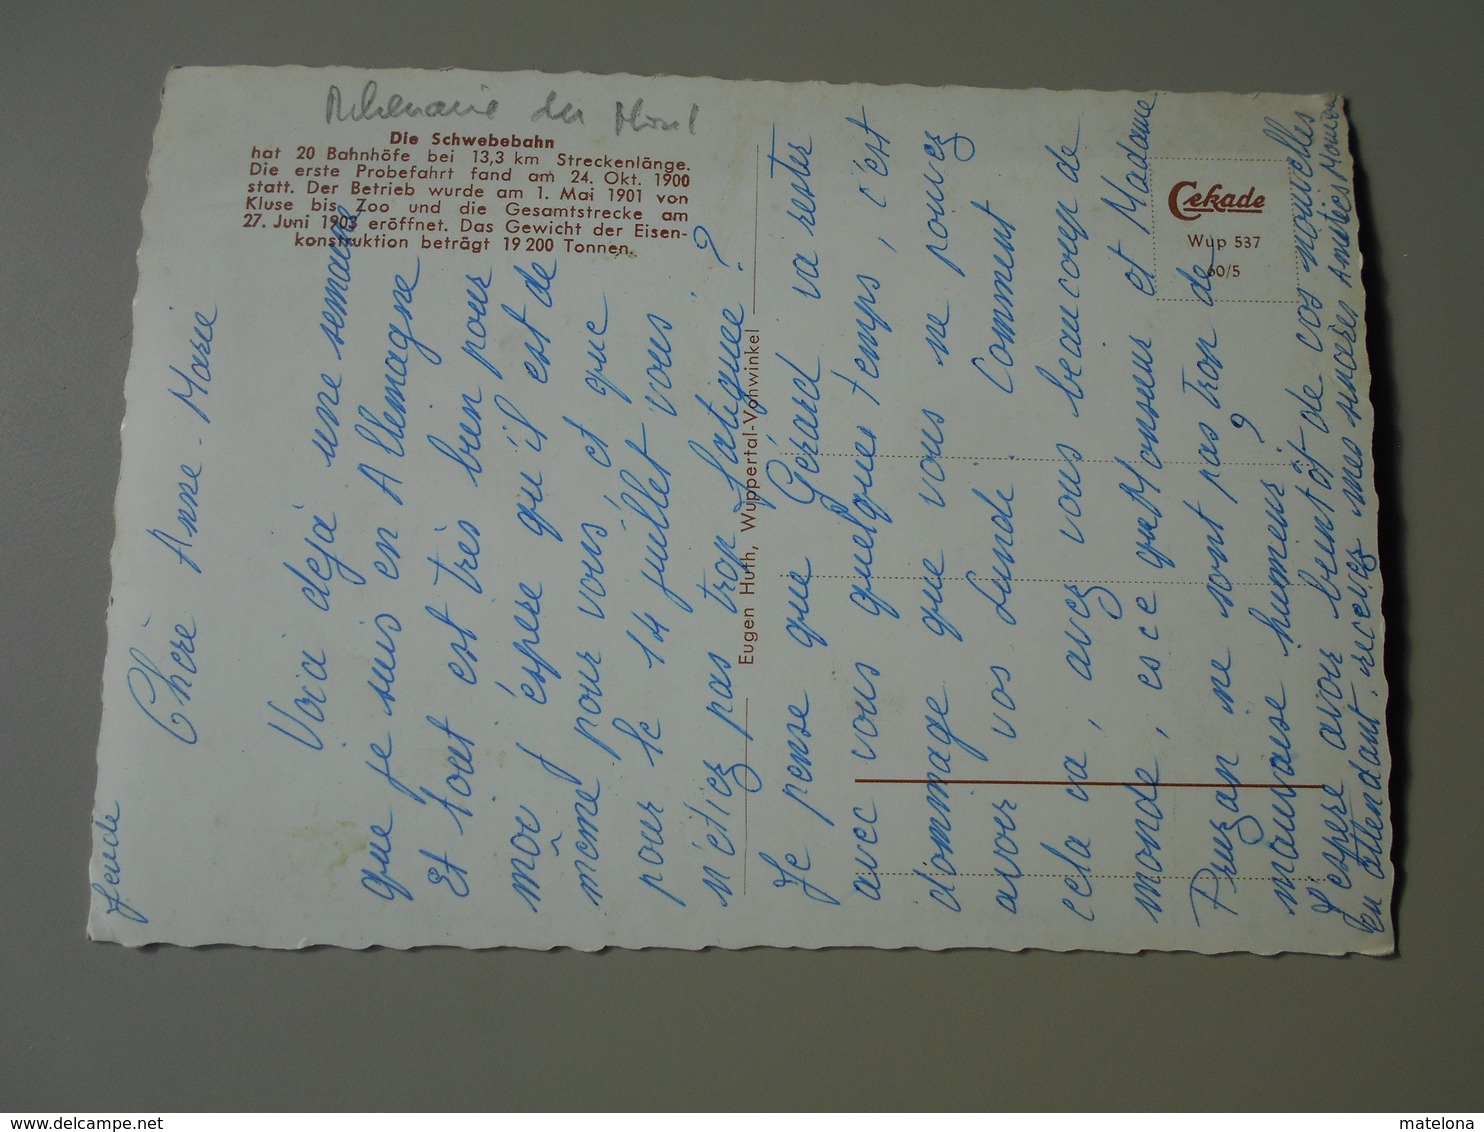 Die Schwebebahn
hat 20 Bahnhöfe bei 13,3 km Streckenlänge.
Die erste Probefahrt fand am 24. Okt. 1900
statt. Der Betrieb wurde am 1. Mai 1901 von
Kluse bis Zoo und die Gesamtstrecke am
27. Juni 1903 eröffnet. Das Gewicht der Eisen-
konstruktion beträgt 19 200 Tonnen.
Cekade
Wup 537
60/5
Eugen Huth, Wuppertal-Vohwinkel
Jeude
Chère Anne-Marie
Voici dejà une semaine
que je suis en Allemagne
Et tout est très bien pour
moi j'éspere qu'il est de
même pour vous et que
pour le 14 juillet vous
n'étiez pas trop fatiguée ?
Je pense que Gérard va rester
avec vous quelques temps, c'est
dommage que vous ne pouvez
avoir vos Lundi. Comment
cela va, avez vous beaucoup de
monde, esce que Monsieur et Madame
ne sont pas trop de
mauvaise humeur ?
J'éspère avoir bientôt de vos nouvelles
En attendant recevez mes sincères Amitiés
matelona
www.delcampe.net